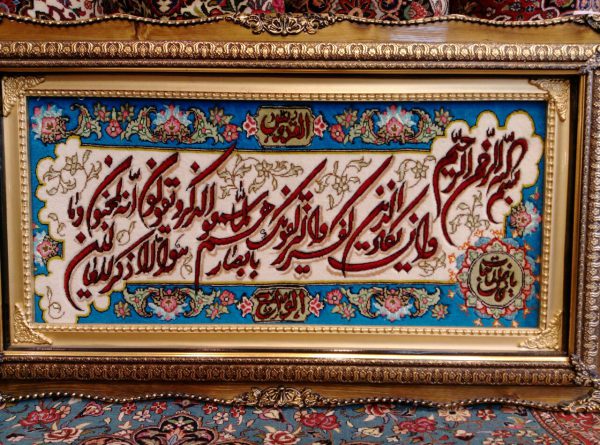 بسم الله الرحمن الرحیم
وان یکاد الذین کفروا لیزلقونک بابصارهم لما سمعوا الذکر و یقولون انه لمجنون وما هو الا ذکر للعالمین
یا قاضی الحاجات